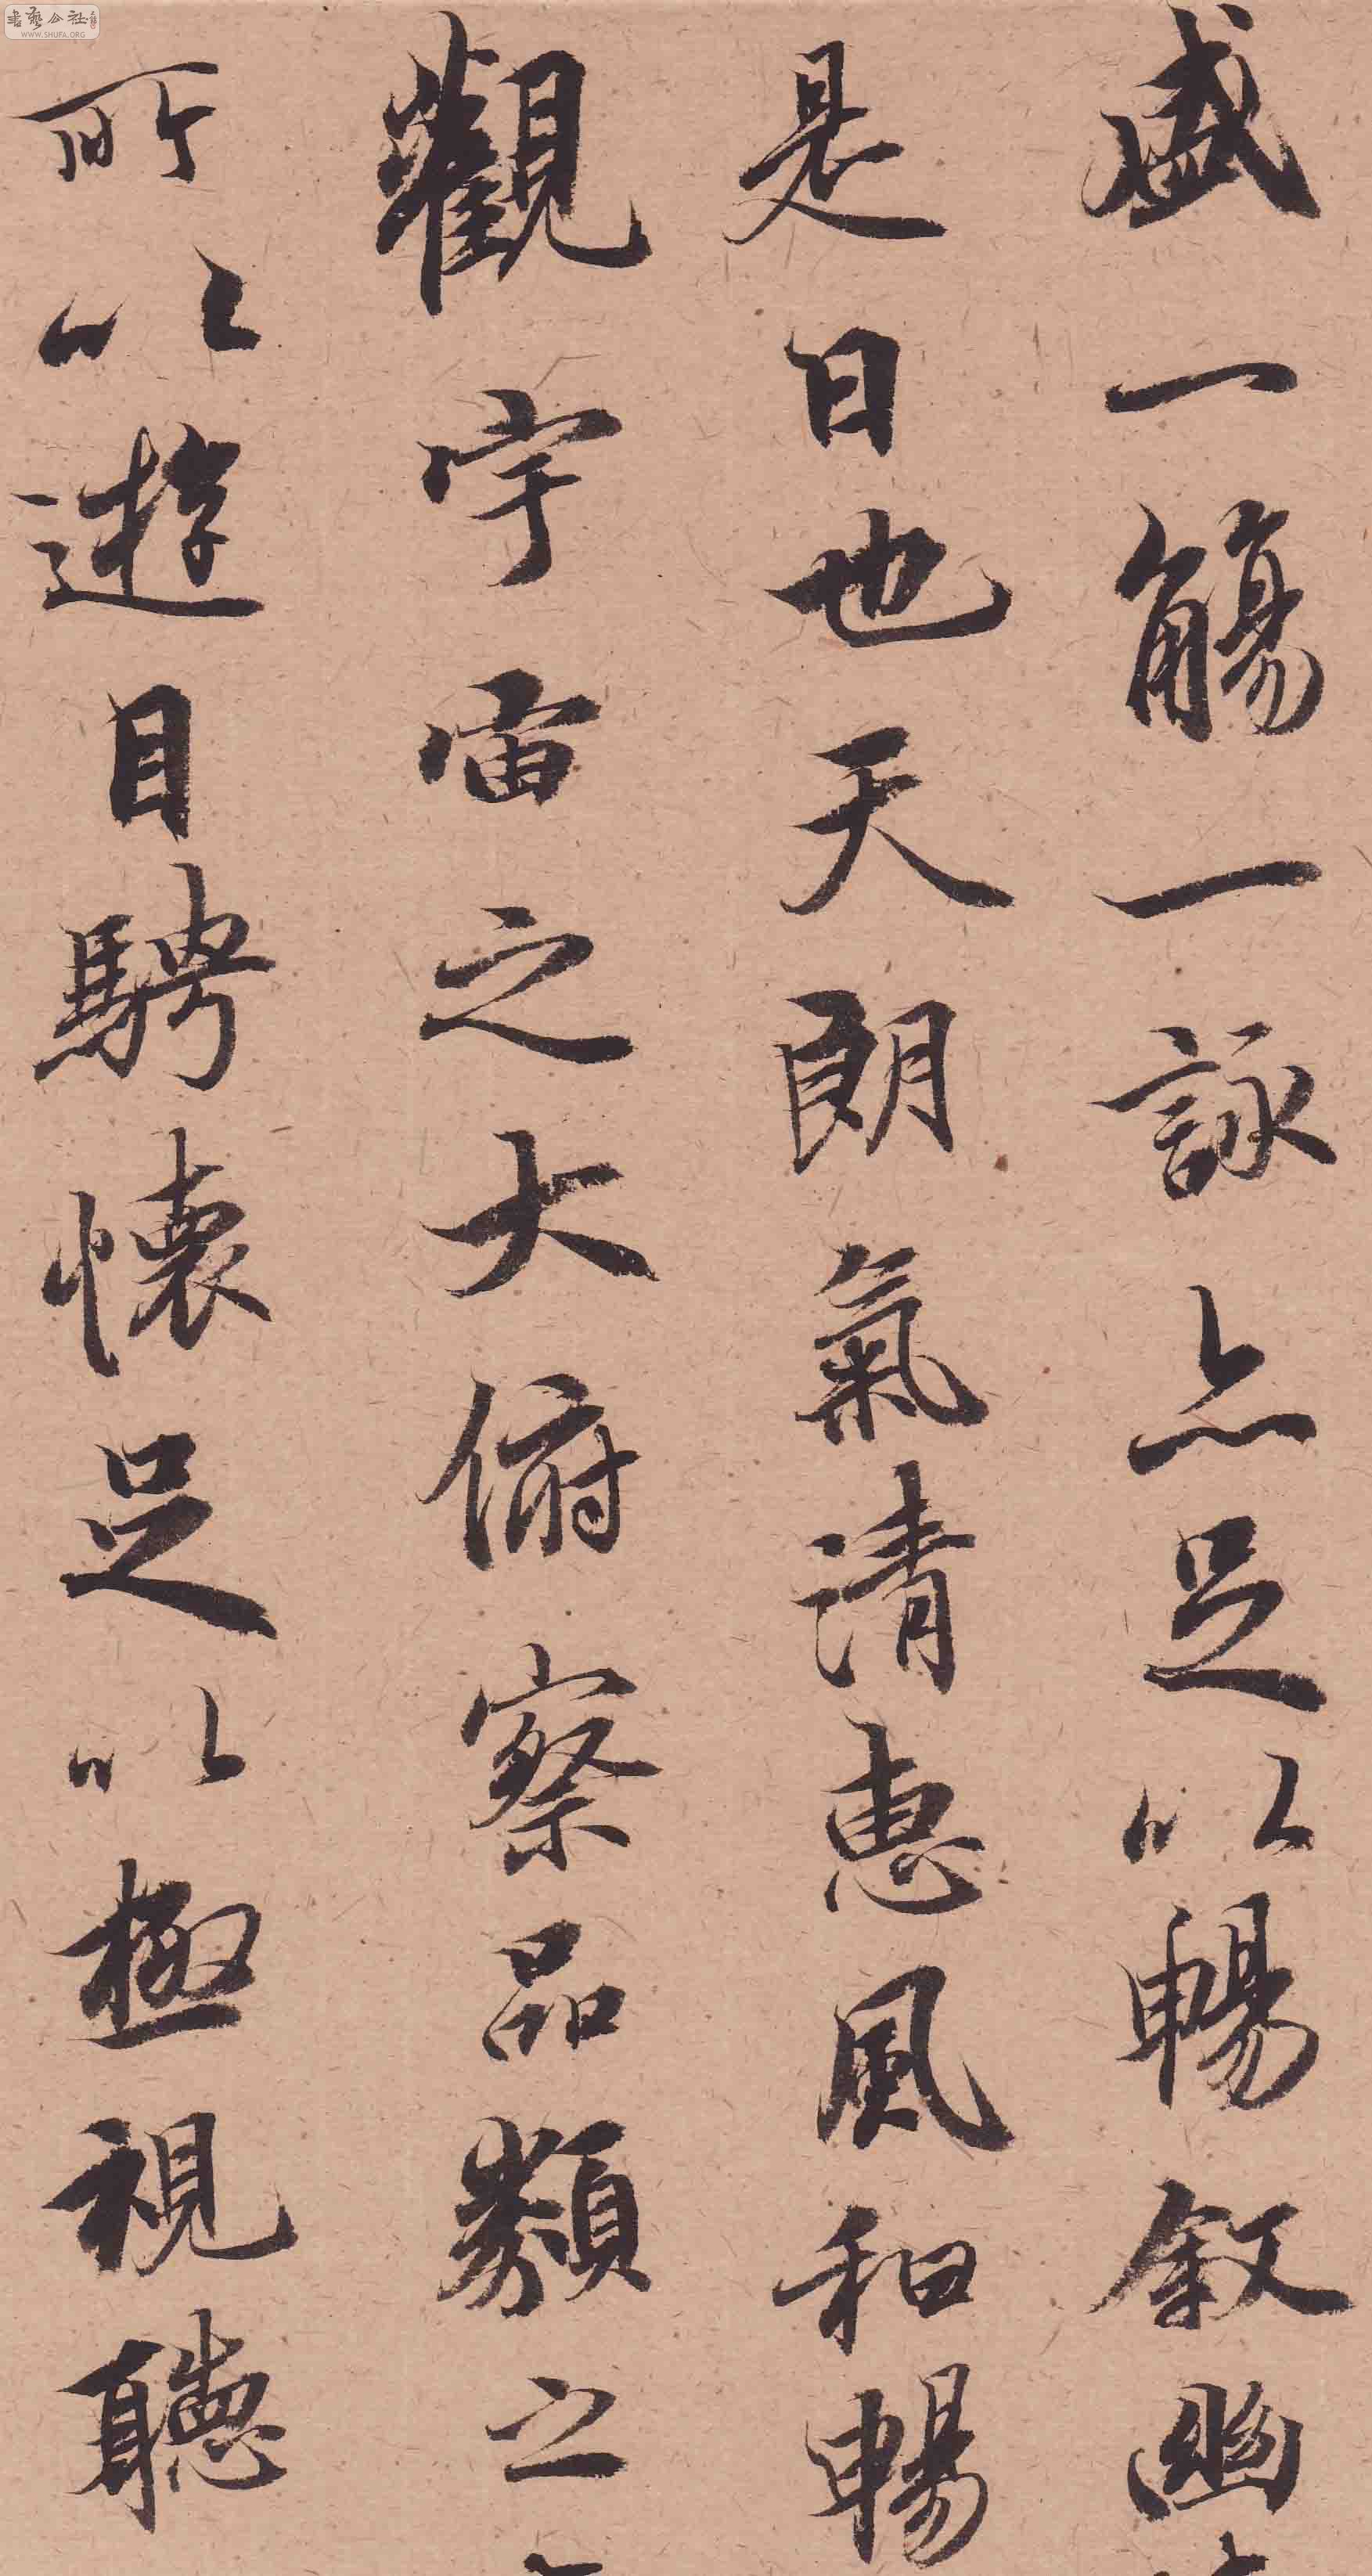 盛一觴一詠亦足以暢敘幽
是日也天朗氣清惠風和暢
觀宇宙之大俯察品類之
所以遊目騁懷足以極視聽
書藝公社
WWW.SHUFA.ORG